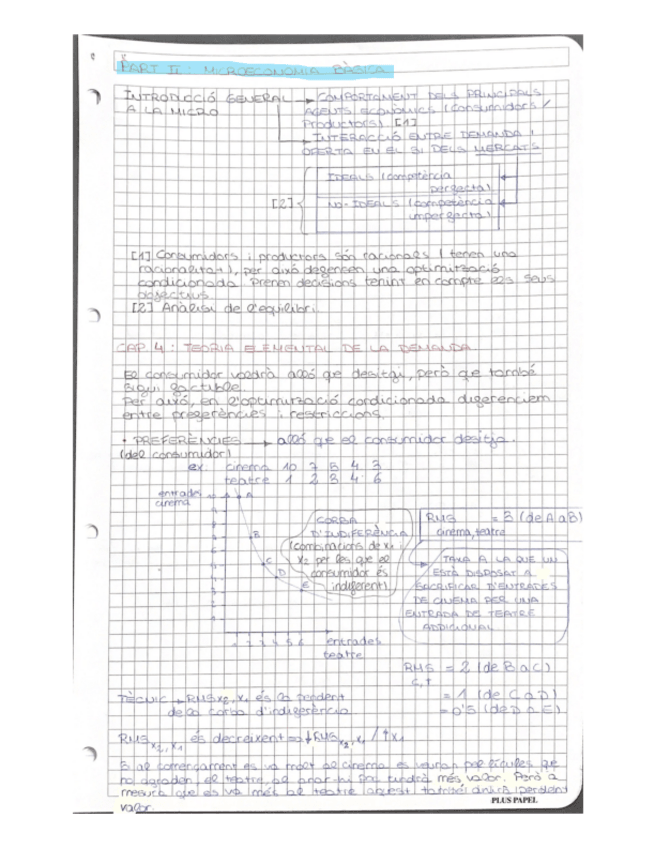 PART II: MICROECONOMIA BÀSICA
INTRODUCCIÓ GENERAL → COMPORTAMENT DELS PRINCIPALS
A LA MICRO AGENTS ECONÒMICS (consumidors /
productors) [1]
→ INTERACCIÓ ENTRE DEMANDA i
OFERTA EN EL SI DELS MERCATS
IDEALS (competència
perfecta)
[2] NO-IDEALS (competència
imperfecta)
[1] Consumidors i productors són racionals (tenen una
racionalitat), per això defensen una optimització
condicionada. Prenen decisions tenint en compte els seus
objectius.
[2] Anàlisi de l'equilibri.
CAP 4: TEORIA ELEMENTAL DE LA DEMANDA
El consumidor voldrà allò que desitgi, però que també
sigui factible.
Per això, en l'optimització condicionada diferenciem
entre preferències i restriccions.
• PREFERÈNCIES → allò que el consumidor desitja.
(del consumidor)
ex. cinema 10 7 5 4 3
teatre 1 2 3 4 6
entrades
cinema
A
B
C
D
E
1 2 3 4 5 6
entrades
teatre
CORBA
D'INDIFERÈNCIA
(combinacions de x1 i
x2 per les que el
consumidor és
indiferent)
RMS = 3 (de A a B)
cinema, teatre
TAXA A LA QUE UN
ESTÀ DISPOSAT A
SACRIFICAR D'ENTRADES
DE CINEMA PER UNA
ENTRADA DE TEATRE
ADDICIONAL
RMS = 2 (de B a C)
C,T
= 1 (de C a D)
= 0'5 (de D a E)
TÈCNIC → RMS x2, x1 és la pendent
de la corba d'indiferència
RMS x2, x1 és decreixent → ↓RMS x2, x1 / ↑x1
Si al començament es va molt al cinema es veuran pel·lícules que
no agraden, el teatre, al anar-hi poc tindrà més valor. Però a
mesura que es va més al teatre aquest també anirà perdent
valor.
PLUS PAPEL